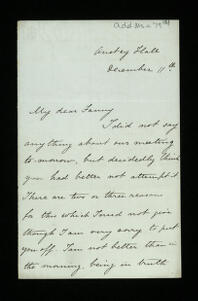 Add. Ms. a 79
Anstey Hall
December 11th.
My dear Fanny
I did not say
anything about our meeting
tomorrow, but decidedly think
you had better not attempt it
There are two or three reasons
for this which I need not give
though I am very sorry to put
you off. I am not better than in
the morning, being in truth